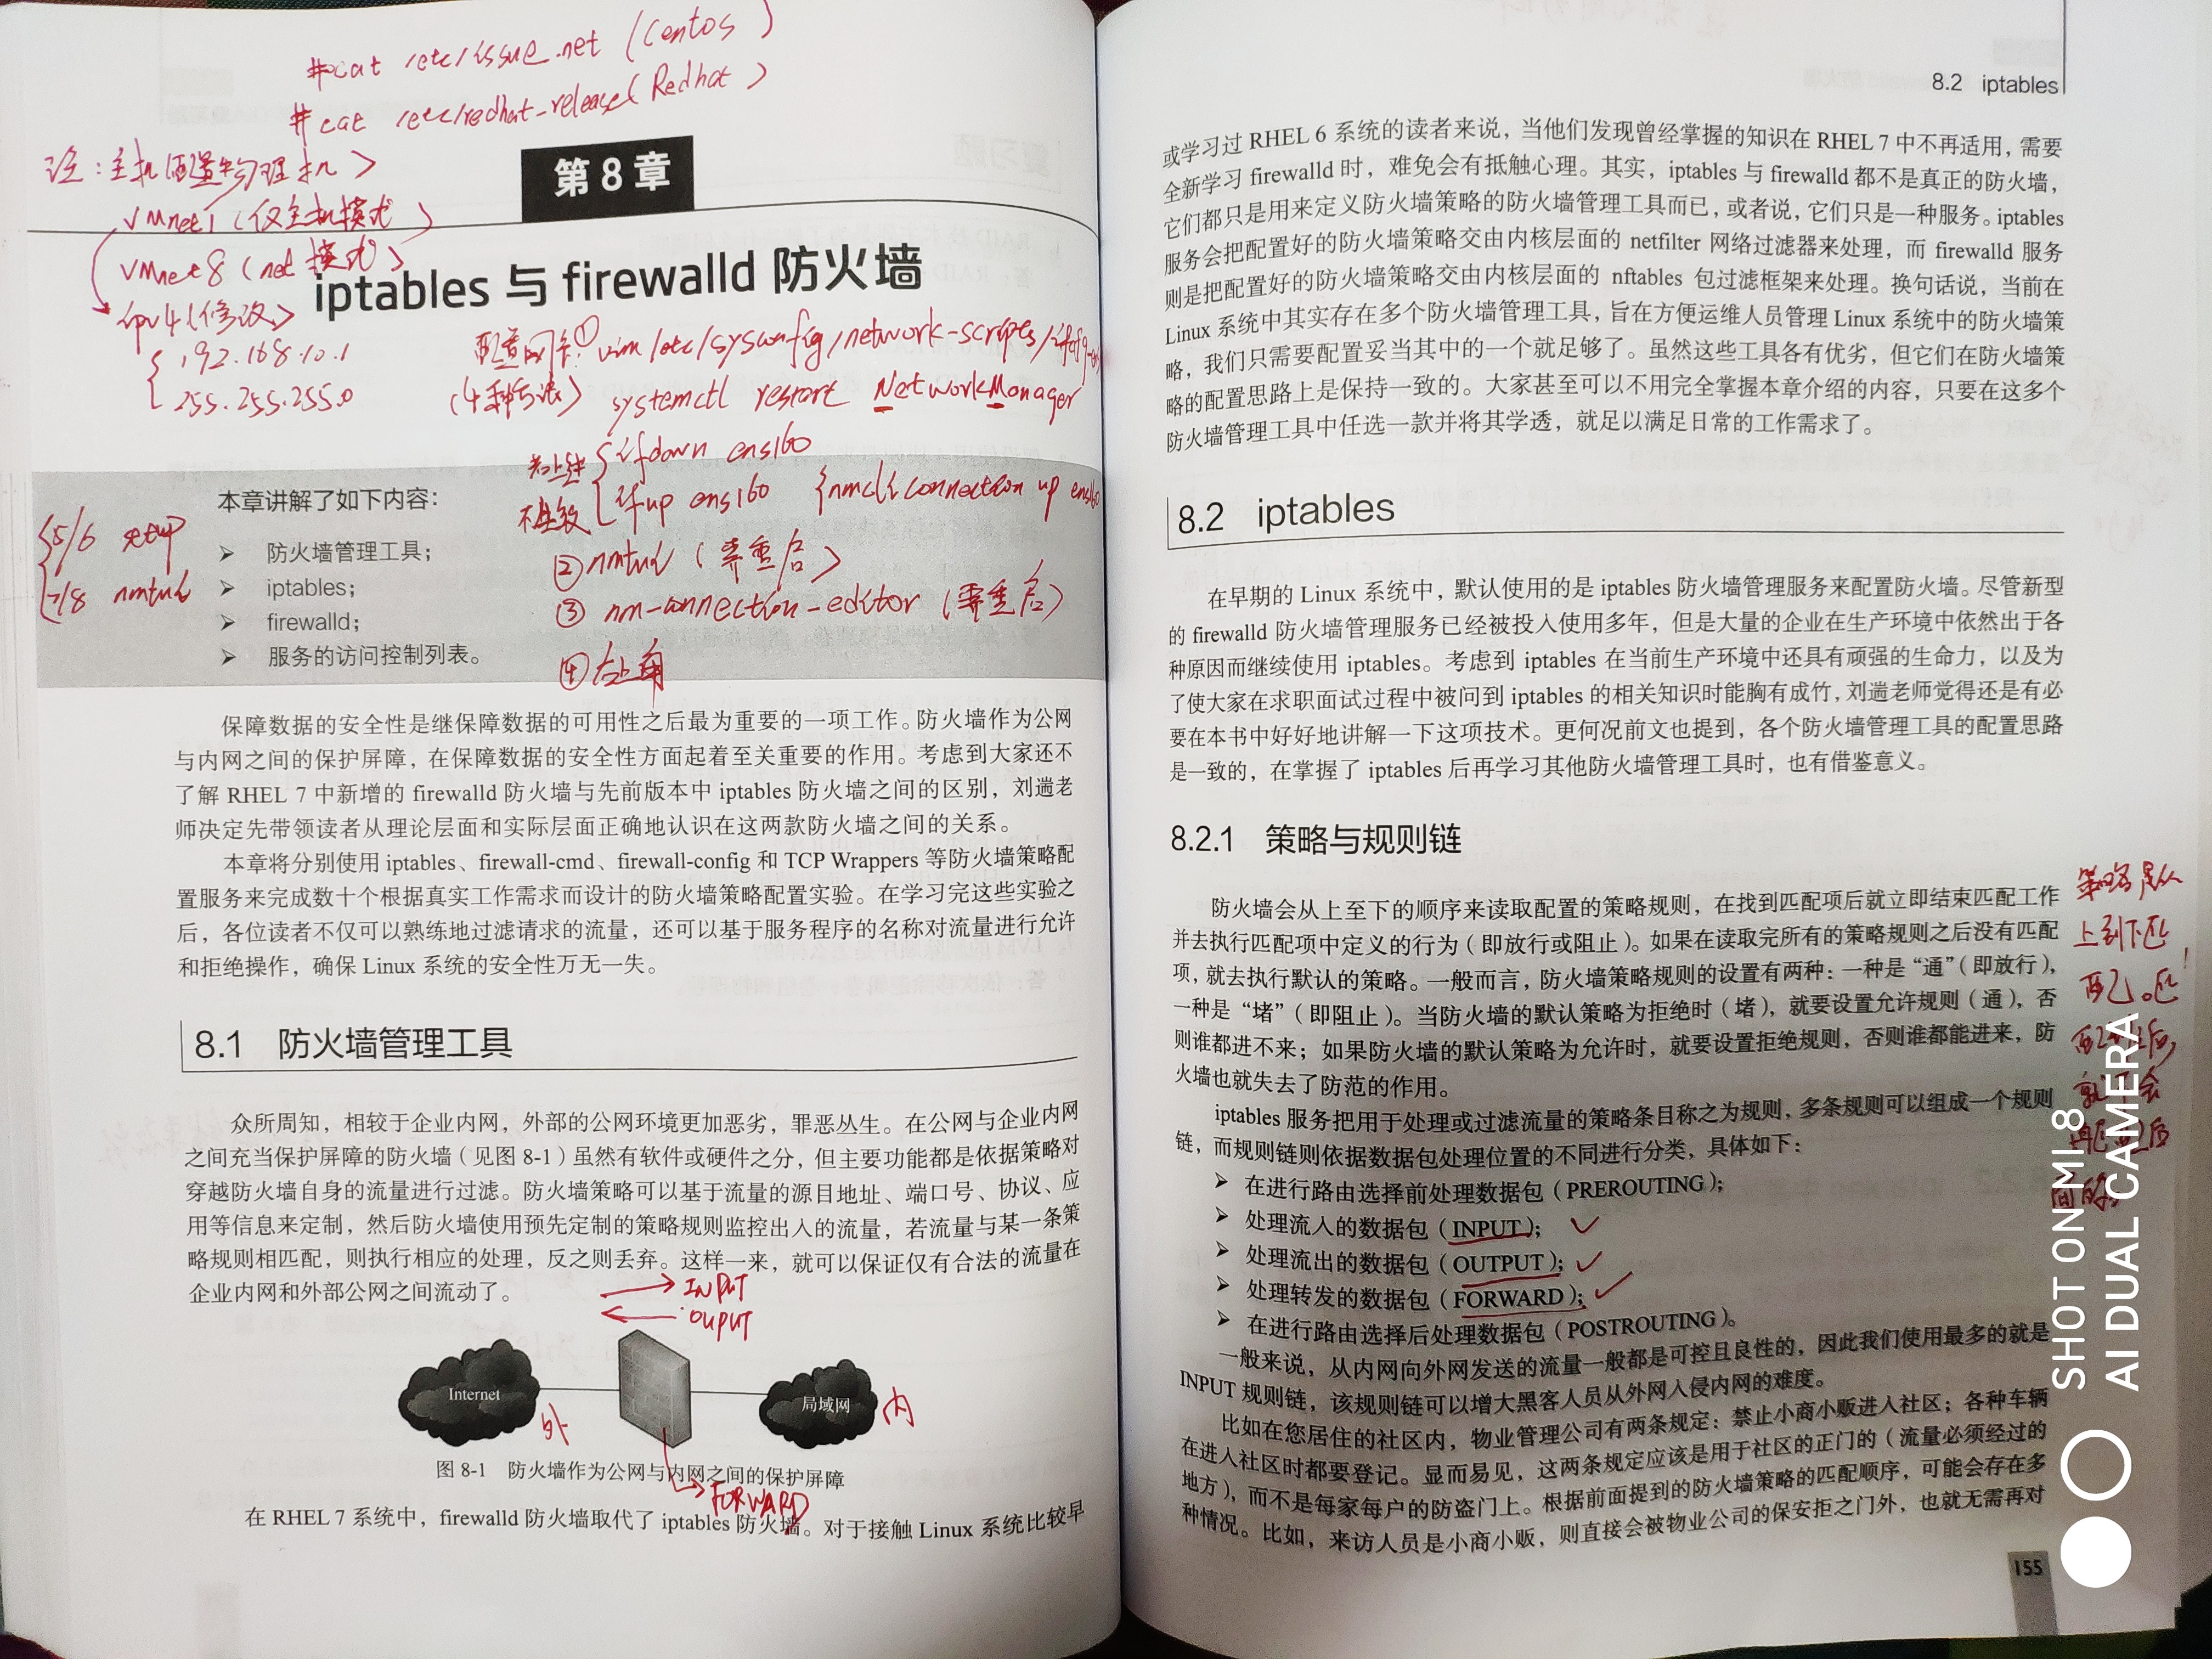 #cat /etc/issue.net (Centos)
#cat /etc/redhat-release (Redhat)
注:主机配置物理机>
VMnet1(仅主机模式)
VMnet8(net模式)
ipv4(修改)
192.168.10.1
255.255.255.0
第 8 章
iptables 与 firewalld 防火墙
配置网卡:①vim /etc/sysconfig/network-scripts/
(4种方法)
systemctl restart NetworkManager
ifdown ens160
ifup ens160 {nmcli connection up ens160
②nmtui(需重启)
③nm-connection-editor(需重启)
④右上角
5/6 setup
7/8 nmtui
本章讲解了如下内容:
➢ 防火墙管理工具;
➢ iptables;
➢ firewalld;
➢ 服务的访问控制列表。
保障数据的安全性是继保障数据的可用性之后最为重要的一项工作。防火墙作为公网
与内网之间的保护屏障,在保障数据的安全性方面起着至关重要的作用。考虑到大家还不
了解 RHEL 7 中新增的 firewalld 防火墙与先前版本中 iptables 防火墙之间的区别,刘遄老
师决定先带领读者从理论层面和实际层面正确地认识在这两款防火墙之间的关系。
本章将分别使用 iptables、firewall-cmd、firewall-config 和 TCP Wrappers 等防火墙策略配
置服务来完成数十个根据真实工作需求而设计的防火墙策略配置实验。在学习完这些实验之
后,各位读者不仅可以熟练地过滤请求的流量,还可以基于服务程序的名称对流量进行允许
和拒绝操作,确保 Linux 系统的安全性万无一失。
8.1 防火墙管理工具
众所周知,相较于企业内网,外部的公网环境更加恶劣,罪恶丛生。在公网与企业内网
之间充当保护屏障的防火墙(见图 8-1)虽然有软件或硬件之分,但主要功能都是依据策略对
穿越防火墙自身的流量进行过滤。防火墙策略可以基于流量的源目地址、端口号、协议、应
用等信息来定制,然后防火墙使用预先定制的策略规则监控出入的流量,若流量与某一条策
略规则相匹配,则执行相应的处理,反之则丢弃。这样一来,就可以保证仅有合法的流量在
企业内网和外部公网之间流动了。
INPUT
OUPUT
Internet
局域网
外
内
图 8-1 防火墙作为公网与内网之间的保护屏障
FORWARD
在 RHEL 7 系统中,firewalld 防火墙取代了 iptables 防火墙。对于接触 Linux 系统比较早
8.2 iptables
或学习过 RHEL 6 系统的读者来说,当他们发现曾经掌握的知识在 RHEL 7 中不再适用,需要
全新学习 firewalld 时,难免会有抵触心理。其实,iptables 与 firewalld 都不是真正的防火墙,
它们都只是用来定义防火墙策略的防火墙管理工具而已,或者说,它们只是一种服务。iptables
服务会把配置好的防火墙策略交由内核层面的 netfilter 网络过滤器来处理,而 firewalld 服务
则是把配置好的防火墙策略交由内核层面的 nftables 包过滤框架来处理。换句话说,当前在
Linux 系统中其实存在多个防火墙管理工具,旨在方便运维人员管理 Linux 系统中的防火墙策
略,我们只需要配置妥当其中的一个就足够了。虽然这些工具各有优劣,但它们在防火墙策
略的配置思路上是保持一致的。大家甚至可以不用完全掌握本章介绍的内容,只要在这多个
防火墙管理工具中任选一款并将其学透,就足以满足日常的工作需求了。
8.2 iptables
在早期的 Linux 系统中,默认使用的是 iptables 防火墙管理服务来配置防火墙。尽管新型
的 firewalld 防火墙管理服务已经被投入使用多年,但是大量的企业在生产环境中依然出于各
种原因而继续使用 iptables。考虑到 iptables 在当前生产环境中还具有顽强的生命力,以及为
了使大家在求职面试过程中被问到 iptables 的相关知识时能胸有成竹,刘遄老师觉得还是有必
要在本书中好好地讲解一下这项技术。更何况前文也提到,各个防火墙管理工具的配置思路
是一致的,在掌握了 iptables 后再学习其他防火墙管理工具时,也有借鉴意义。
8.2.1 策略与规则链
防火墙会从上至下的顺序来读取配置的策略规则,在找到匹配项后就立即结束匹配工作
并去执行匹配项中定义的行为(即放行或阻止)。如果在读取完所有的策略规则之后没有匹配
项,就去执行默认的策略。一般而言,防火墙策略规则的设置有两种:一种是“通”(即放行),
一种是“堵”(即阻止)。当防火墙的默认策略为拒绝时(堵),就要设置允许规则(通),否
则谁都进不来;如果防火墙的默认策略为允许时,就要设置拒绝规则,否则谁都能进来,防
火墙也就失去了防范的作用。
iptables 服务把用于处理或过滤流量的策略条目称之为规则,多条规则可以组成一个规则
链,而规则链则依据数据包处理位置的不同进行分类,具体如下:
➢ 在进行路由选择前处理数据包(PREROUTING);
➢ 处理流入的数据包(INPUT);
➢ 处理流出的数据包(OUTPUT);
➢ 处理转发的数据包(FORWARD);
➢ 在进行路由选择后处理数据包(POSTROUTING)。
一般来说,从内网向外网发送的流量一般都是可控且良性的,因此我们使用最多的就是
INPUT 规则链,该规则链可以增大黑客人员从外网入侵内网的难度。
比如在您居住的社区内,物业管理公司有两条规定:禁止小商小贩进入社区;各种车辆
在进入社区时都要登记。显而易见,这两条规定应该是用于社区的正门的(流量必须经过的
地方),而不是每家每户的防盗门上。根据前面提到的防火墙策略的匹配顺序,可能会存在多
种情况。比如,来访人员是小商小贩,则直接会被物业公司的保安拒之门外,也就无需再对
策略是从
上到下匹
配。匹
155
SHOT ON MI 8
AI DUAL CAMERA